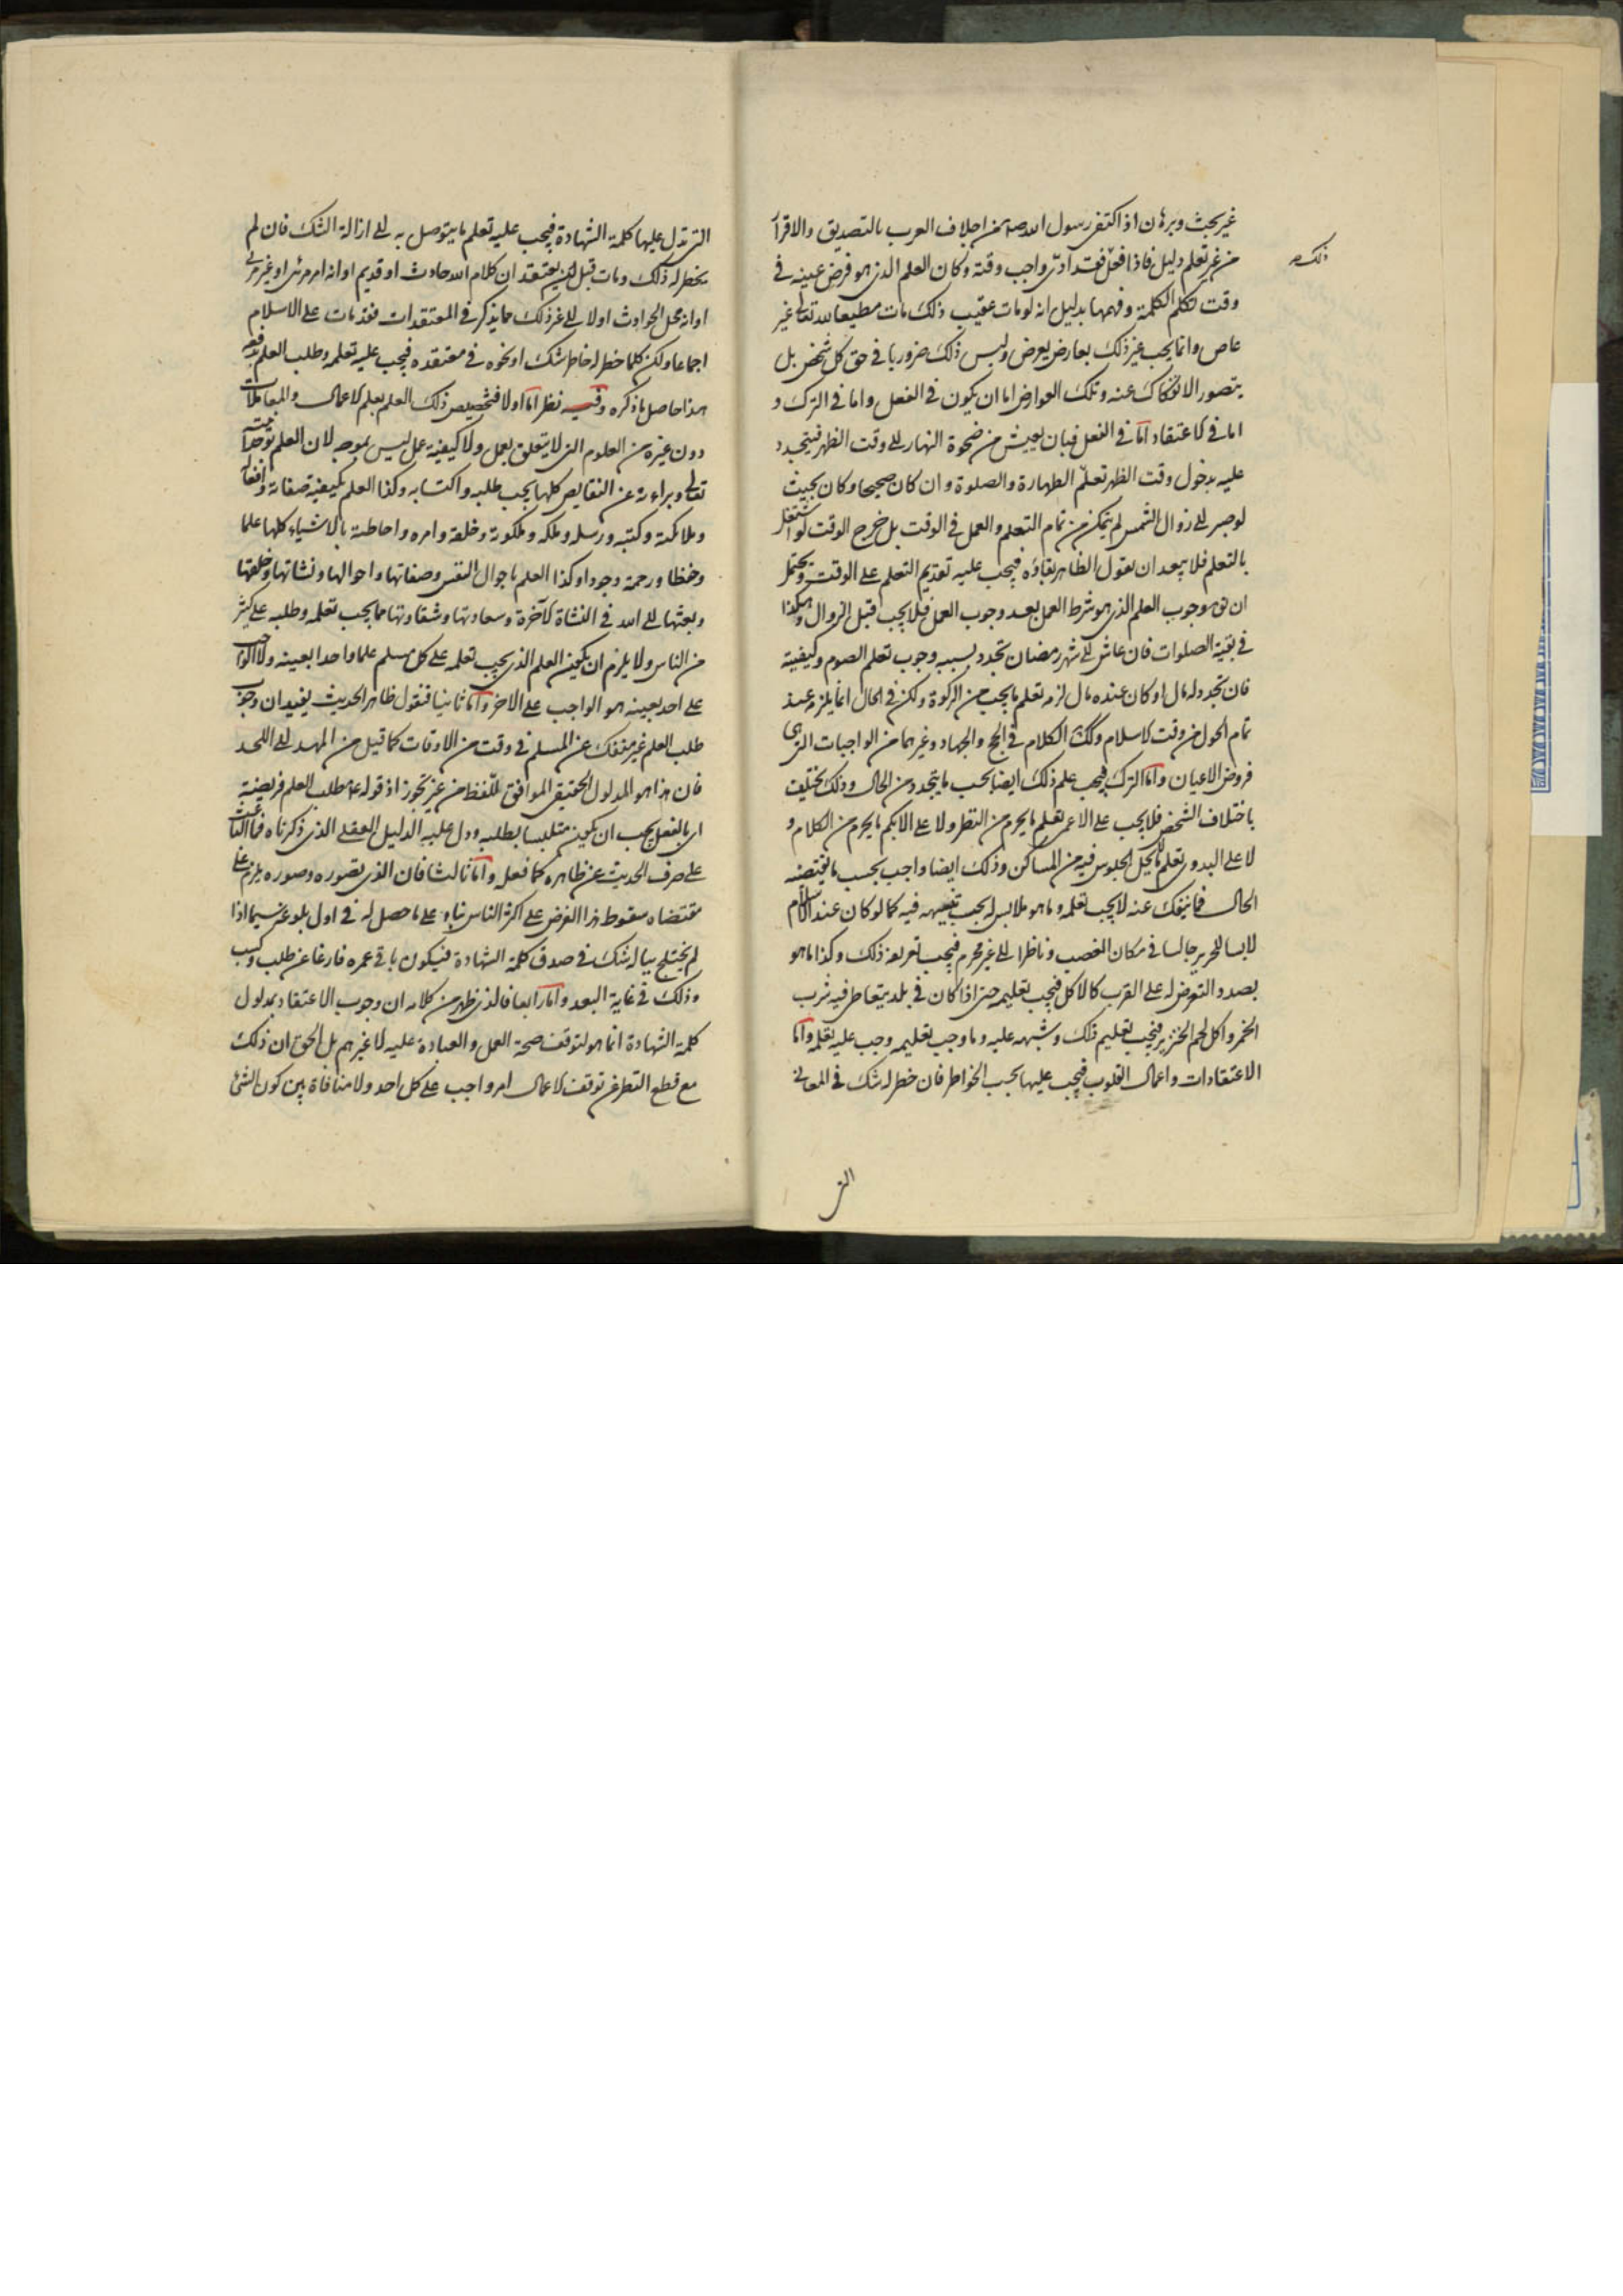 غير بحث وبرهان اذ اكتفى رسول الله صه من اجلاف العرب بالتصديق والاقرار
من غير تعلم دليل فاذا فعل فقد ادى واجب وقته وكان العلم الذى هو فرض عينه فى
ذلك صه
وقت تكلم الكلمة وفهمها بدليل انه لو مات عقيب ذلك مات مطيعا لله تعالى غير
عاص وانما يجب غير ذلك بعارض يعرض وليس ذلك ضروريا فى حق كل شخص بل
يتصور الانفكاك عنه وتلك العوارض اما ان يكون فى الفعل واما فى الترك و
اما فى الاعتقاد اما فى الفعل فبان يعيش من ضحوة النهار الى وقت الظهر فيتجدد
عليه بدخول وقت الظهر تعلّم الطهارة والصلوة وان كان صحيحا وكان بحيث
لو صبر الى زوال الشمس لم يتمكن من تمام التعلم والعمل فى الوقت بل خرج الوقت لو اشتغل
بالتعلم فلا يبعد ان نقول الظاهر بقاؤه فيجب عليه تقديم التعلم على الوقت ويحتمل
ان يق وجوب العلم الذى هو شرط العمل بعد وجوب العمل فلا يجب قبل الزوال وهكذا
فى بقية الصلوات فان عاش الى شهر رمضان تجدد بسببه وجوب تعلم الصوم وكيفيته
فان تجدد له مال او كان عنده مال لزمه تعلم ما يجب من الزكوة ولكن فى الحال انما يلزمه عند
تمام الحول من وقت الاسلام وكذلك الكلام فى الحج والجهاد وغيرهما من الواجبات التى هى
فروض الاعيان واما الترك فيجب علم ذلك ايضا بحسب ما يتجدد من الحال وذلك يختلف
باختلاف الشخص فلا يجب على الاعمى تعلم ما يحرم من النظر ولا على الابكم ما يحرم من الكلام و
لا على البدوى تعلم ما يحل الجلوس فيه من المساكن وذلك ايضا واجب بحسب ما يقتضيه
الحال فما ينفك عنه لا يجب تعلمه وما هو ملابس له يجب تنبيهه فيه كما لو كان عند الاسلام
لابسا للحرير جالسا فى مكان الغصب وناظرا الى غير محرم فيجب تعريفه ذلك وكذا ما هو
بصدد التعرض له على القرب كالاكل فيجب تعليمه حتى اذا كان فى بلد يتعاطى فيه شرب
الخمر واكل لحم الخنزير فيجب تعليم ذلك وشبهه عليه وما وجب تعليمه وجب عليه تعلمه واما
الاعتقادات واعمال القلوب فيجب عليها بحسب الخواطر فان خطر له شك فى المعانى
التى
التى تدل عليها كلمة الشهادة فيجب عليه تعلم ما يتوصل به الى ازالة الشك فان لم
يخطر له ذلك ومات قبل ان يعتقد ان كلام الله حادث او قديم او انه امر مرئى او غير مرئى
او انه محل الحوادث او لا الى غير ذلك مما يذكر فى المعتقدات فقد مات على الاسلام
اجماعا ولكن كلما خطر له خاطر شك او نحوه فى معتقده فيجب عليه تعلمه وطلب العلم بدفعه
هذا حاصل ما ذكره وفيه نظر اما اولا فتخصيص ذلك العلم بعلم الاعمال والمعاملات
دون غيره من العلوم التى لا يتعلق بعمل ولا كيفية عمل ليس بموجه لان العلم بوحدانيته
تعالى وبراءته عن النقايص كلها يجب طلبه واكتسابه وكذا العلم بكيفية صفاته وافعاله
وملائكته وكتبه ورسله وملكه وملكوته وخلقه وامره واحاطته بالاشياء كلها علما
وحفظا ورحمة وجودا وكذا العلم باحوال النفس وصفاتها واحوالها ونشاتها وخلقتها
وبعثها الى الله فى النشاة الآخرة وسعادتها وشقاوتها مما يجب تعلمه وطلبه على كثير
من الناس ولا يلزم ان يكون العلم الذى يجب تعلمه على كل مسلم علما واحدا بعينه ولا الواجب
على احد بعينه هو الواجب على الاخر واما ثانيا فنقول ظاهر الحديث يفيد ان وجوب
طلب العلم غير منفك عن المسلم فى وقت من الاوقات كما قيل من المهد الى اللحد
فان هذا هو المدلول الحقيقى الموافق للفظ من غير تجوز اذ قوله عم طلب العلم فريضة
اى بالفعل يجب ان يكون متلبسا بطلبه ودل عليه الدليل العقلى الذى ذكرناه فما الباعث
على صرف الحديث عن ظاهره كما فعل واما ثالثا فان الذى تصوره وصوره يلزم على
مقتضاه سقوط هذا الفرض على اكثر الناس بناء على ما حصل له فى اول بلوغه سيما اذا
لم يختلج بباله شك فى صدق كلمة الشهادة فيكون باقى عمره فارغا عن طلب وكسب
وذلك فى غاية البعد واما رابعا فالذى ظهر من كلامه ان وجوب الاعتقاد بمدلول
كلمة الشهادة انما هو لتوقف صحة العمل والعبادة عليه لا غير هم بل الحق ان ذلك
مع قطع النظر عن توقف الاعمال امر واجب على كل احد ولا منافاة بين كون الشئ